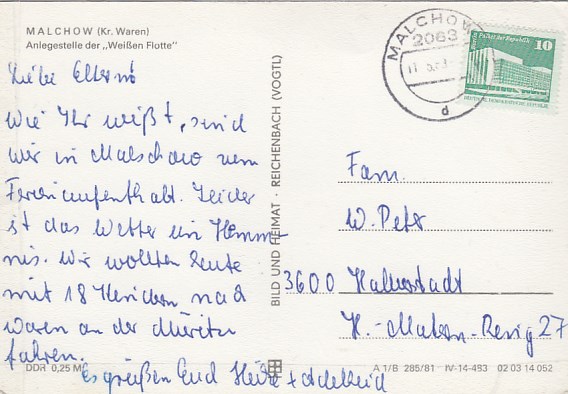 MALCHOW (Kr. Waren)
Anlegestelle der „Weißen Flotte"
Liebe Eltern!
Wie Ihr wißt, sind
wir in Malchow zum
Ferienaufenthalt. Leider
ist das Wetter ein Hemm-
nis. Wir wollten heute
mit 18 Kindern nach
Waren an der Müritz
fahren.
Es grüßen Euch Heinz + Adelheid
DDR 0,25 M
BILD UND HEIMAT · REICHENBACH (VOGTL)
MALCHOW
2063
d
Berlin, Palast der Republik
10
DEUTSCHE DEMOKRATISCHE REPUBLIK
Fam.
W. Peter
3600 Halberstadt
H.-Matern-Ring 27
A 1/B 285/81 IV-14-483 02 03 14 052